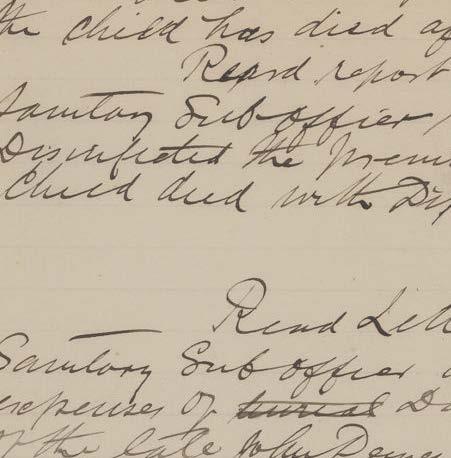 the child has died
Read report
Sanitary Sub officer
Disinfected the
Child died with
Read
Sanitary Sub officer
expenses of burial
of the late John